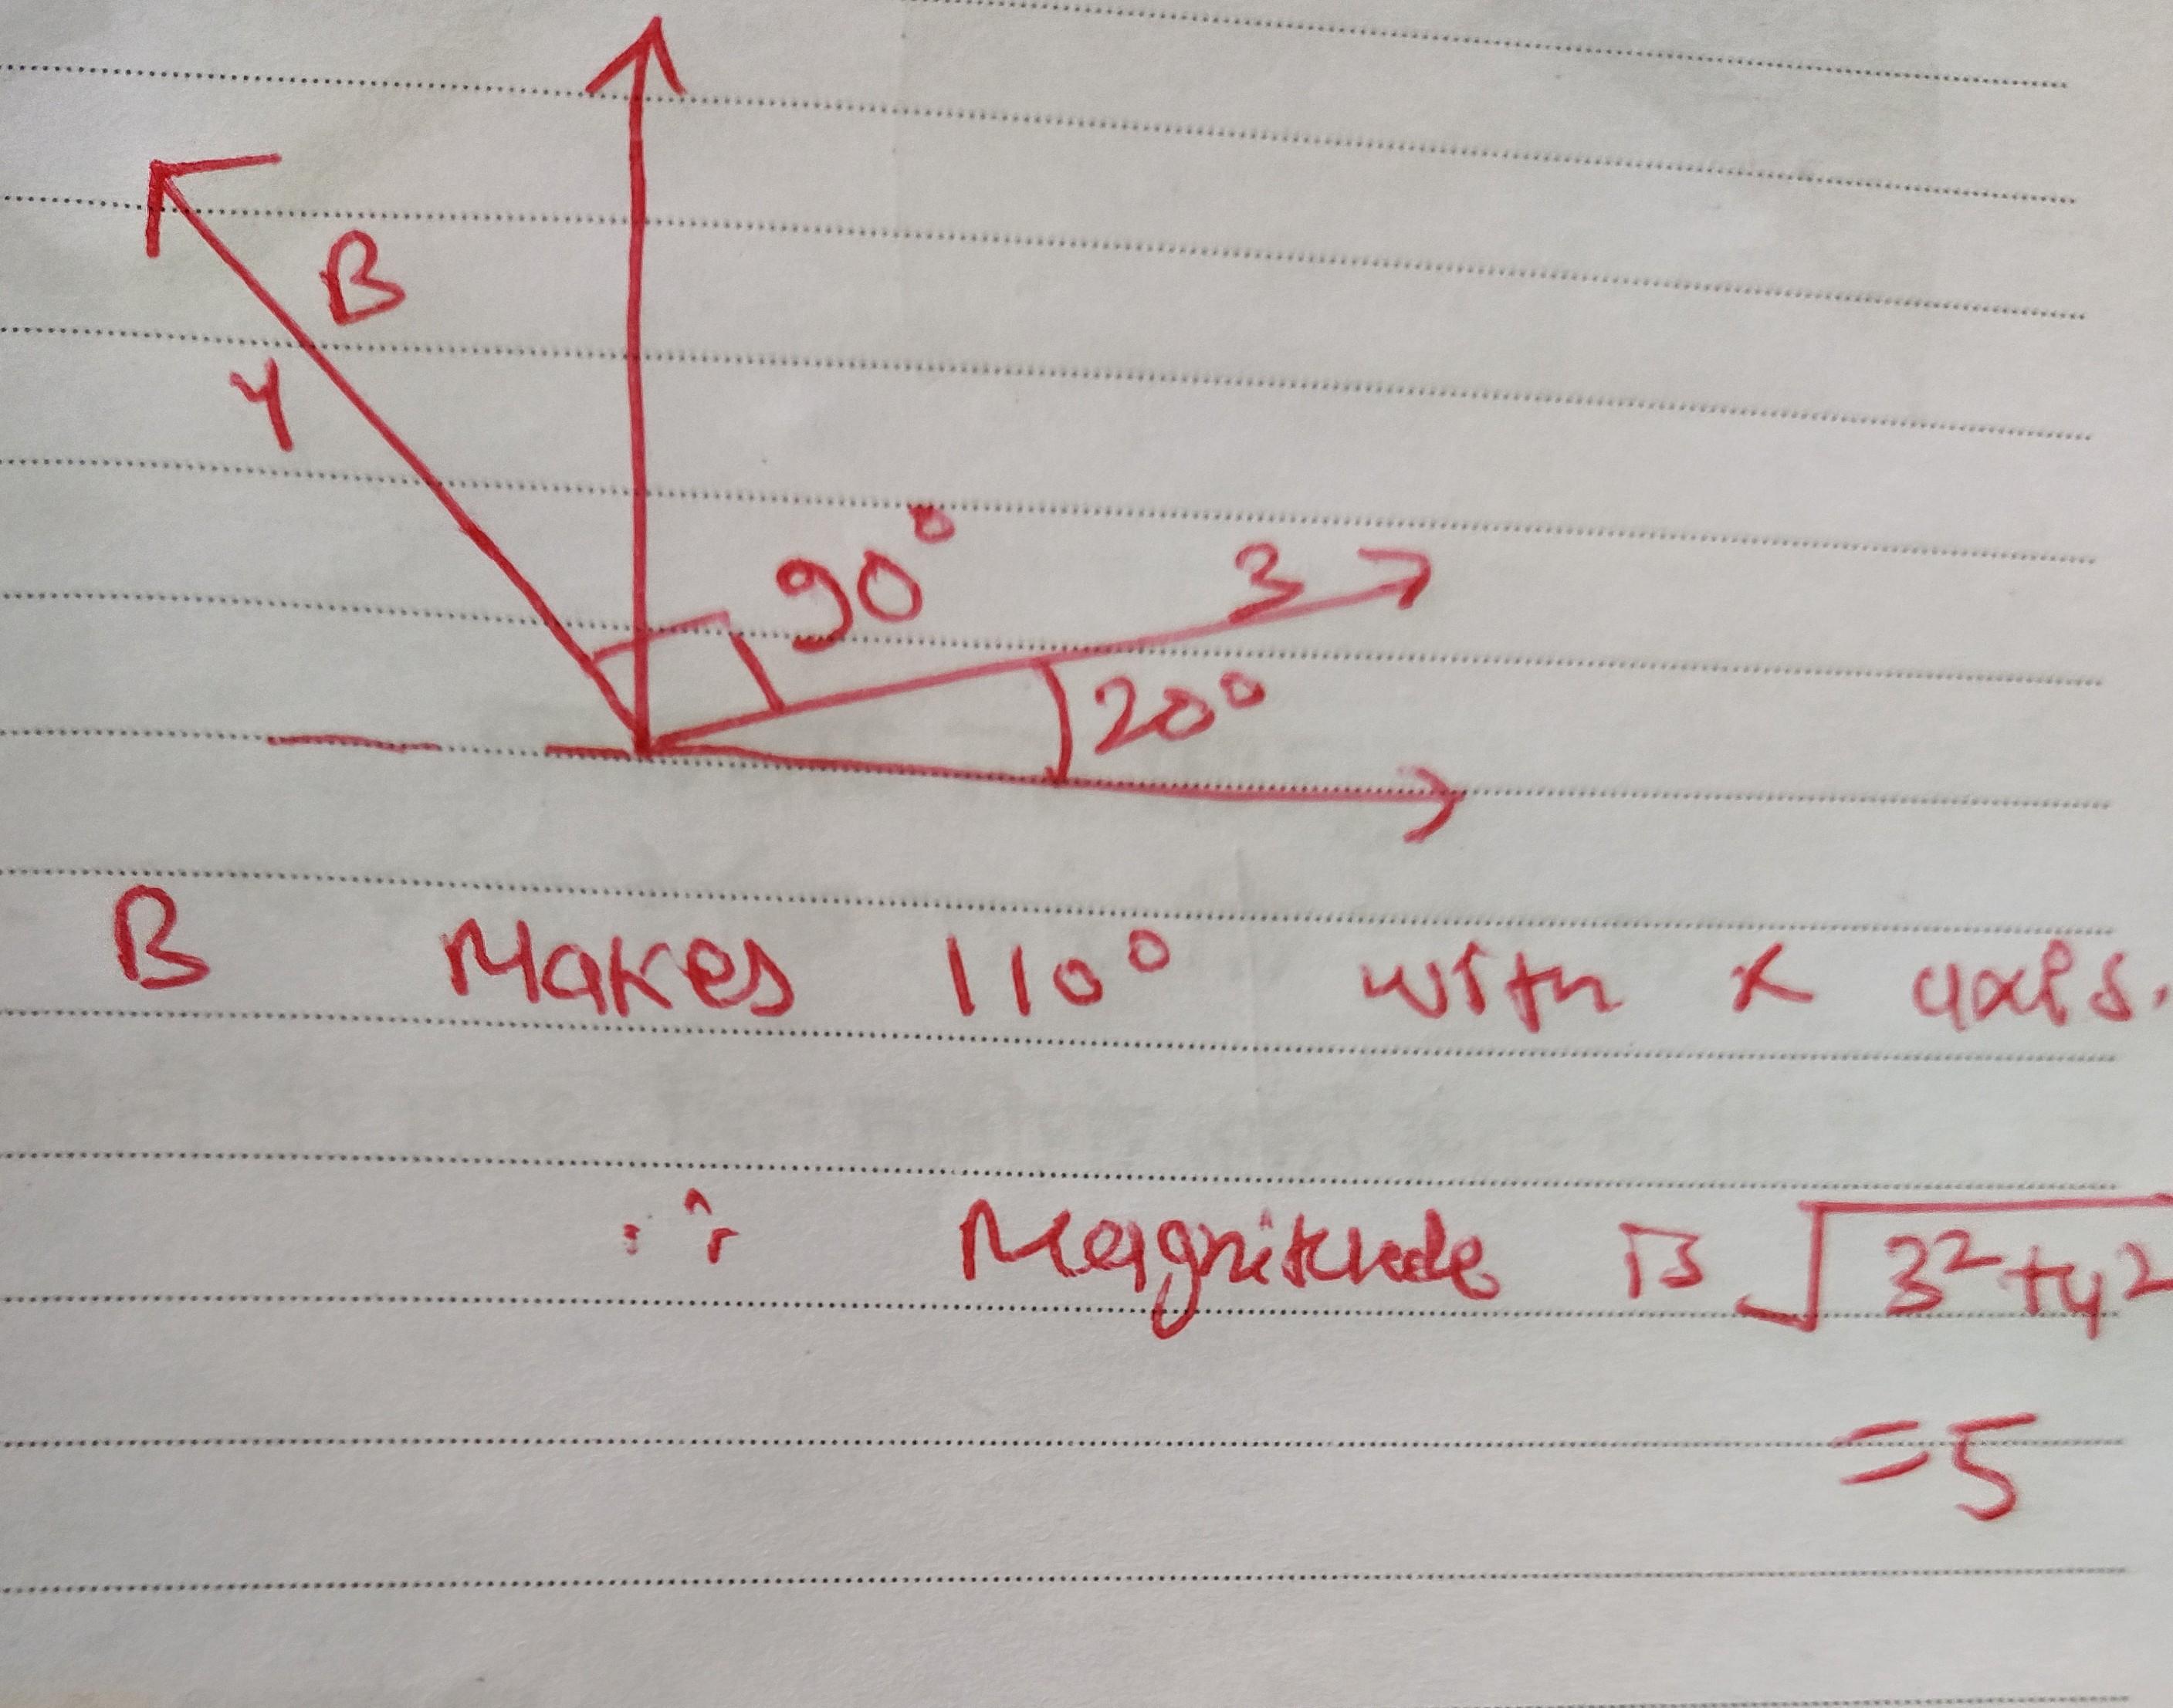 B
4
90°
3
20°
B Makes 110° with x axis.
∴ Magnitude is √3²+4²
=5